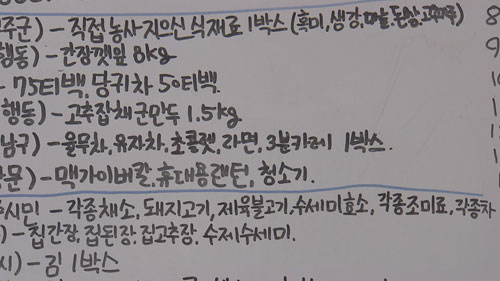 주군) - 직접 농사 지으신 식재료 1박스 (흑미, 생강, 마늘, 된장, 고추가루) 8
행동) - 간장깻잎 8kg 9
- 75티백, 당귀차 50티백. 1
행동) - 고추잡채군만두 1.5kg 1
남구) - 율무차, 유자차, 초콜렛, 라면, 3분카레 1박스. 1
방문) - 맥가이버칼, 휴대용랜턴, 청소기. 1
시민 - 각종채소, 돼지고기, 제육불고기, 수세미효소, 각종조미료, 각종차
) - 집간장, 집된장, 집고추장, 수제수세미.
시) - 김 1박스